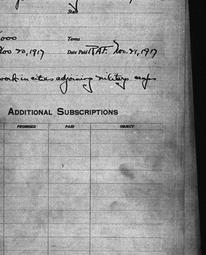 State
000 Terms
Nov 20, 1917 Date Paid RAF. Nov. 21, 1917
work in cities adjoining military camps
ADDITIONAL SUBSCRIPTIONS
PROMISED PAID OBJECT